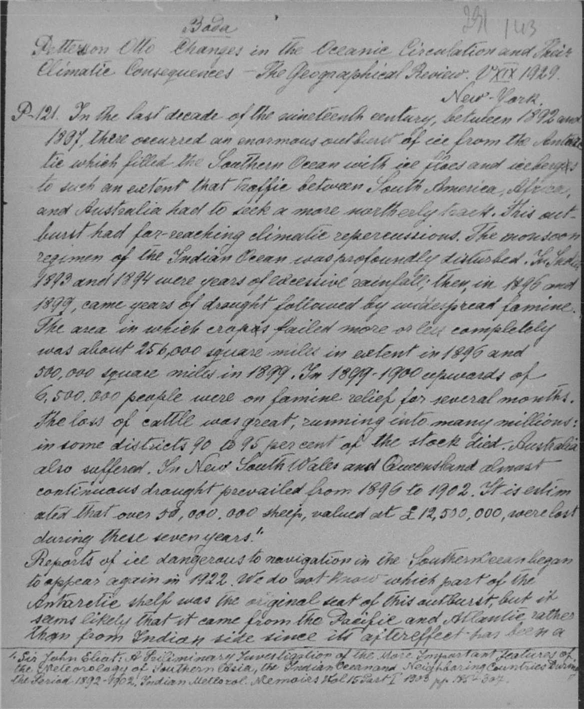 Boda
143
Petterson Otto Changes in the Oceanic Circulation and Their
Climatic Consequences - The Geographical Review. V XIX 1929.
New-York.
P. 121. In the last decade of the nineteenth century, between 1892 and
1897, there occurred an enormous outburst of ice from the Antarc-
tic which filled the Southern Ocean with ice floes and icebergs
to such an extent that traffic between South America, Africa,
and Australia had to seek a more northerly tract. This out-
burst had far-reaching climatic repercussions. The monsoon
regimen of the Indian Ocean was profoundly disturbed. In India
1893 and 1894 were years of excessive rainfall; then, in 1896 and
1899, came years of drought followed by widespread famine.
The area in which crops failed more or less completely
was about 256,000 square miles in extent in 1896 and
500,000 square miles in 1899. In 1899-1900 upwards of
6,500,000 people were on famine relief for several months.
The loss of cattle was great, running into many millions:
in some districts 90 to 95 per cent of the stock died. Australia
also suffered. In New South Wales and Queensland almost
continuous drought prevailed from 1896 to 1902. It is estim
ated that over 50,000,000 sheep, valued at £12,500,000, were lost
during these seven years."
Reports of ice dangerous to navigation in the Southern Ocean began
to appear again in 1922. We do not know which part of the
Antarctic shelf was the original seat of this outburst, but it
seems likely that it came from the Pacific and Atlantic, rather
than from Indian side since its aftereffect has been a
Sir John Eliot: A Preliminary Investigation of the More Important Features of
the Meteorology of Southern Asia, the Indian Ocean and Neighboring Countries During
the Period 1892-1902, Indian Meteorol. Memoirs Vol 16 Part I 1903 pp. 185-307.